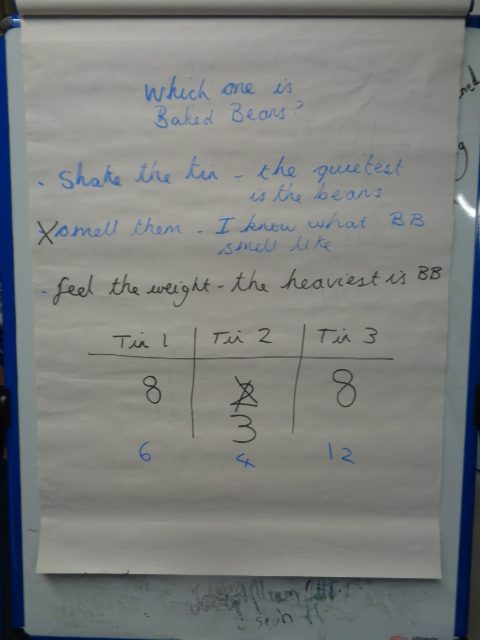 Which one is
Baked Beans?
. Shake the tin - the quietest
is the beans
X smell them - I know what BB
smell like
- feel the weight - the heaviest is BB
Tin 1 Tin 2 Tin 3
8 2 8
3
6 4 12